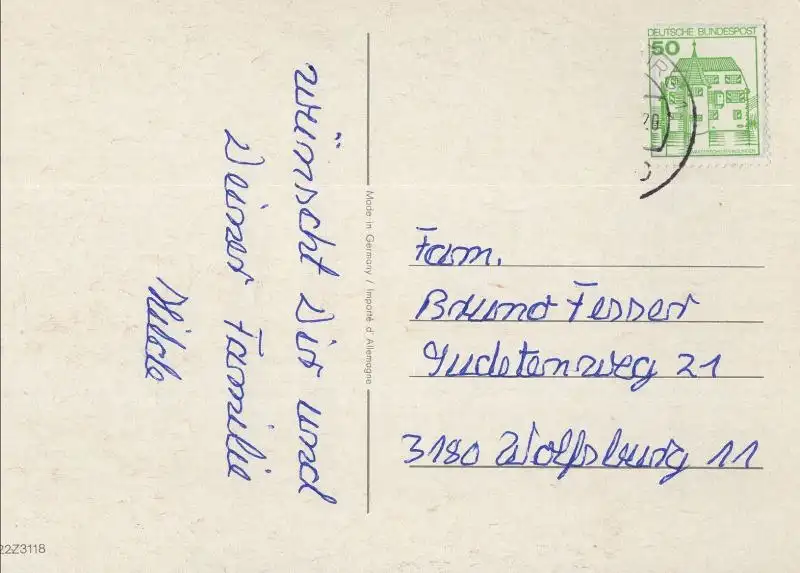 wünscht Dir und
Deiner Familie
DEUTSCHE BUNDESPOST
50
Made in Germany / Importé d'Allemagne
Fam.
Bruno Fesser
Sudetenweg 21
3180 Wolfsburg 11
22Z3118